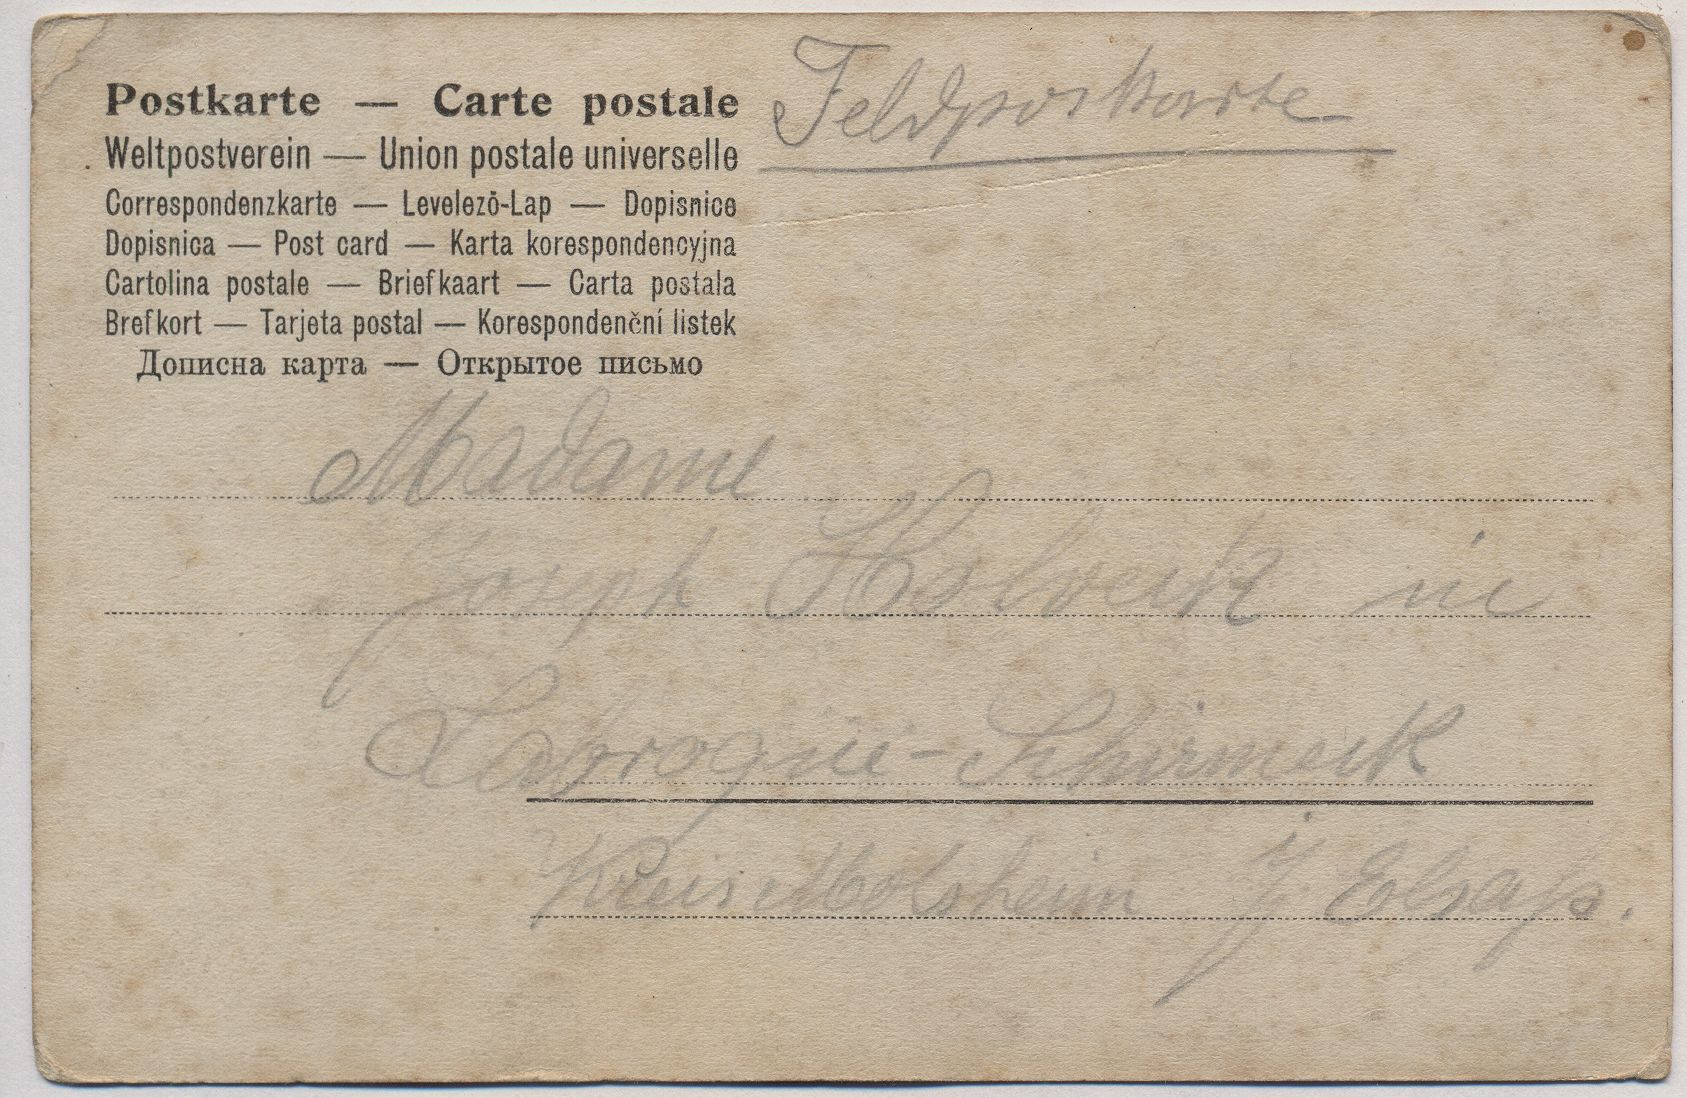 Postkarte — Carte postale
Feldpostkarte
Weltpostverein — Union postale universelle
Correspondenzkarte — Levelező-Lap — Dopisnice
Dopisnica — Post card — Karta korespondencyjna
Cartolina postale — Briefkaart — Carta postala
Brefkort — Tarjeta postal — Korespondenční listek
Дописна карта — Открытое письмо
Madame
Joseph Holveck in
Labroque-Schirmeck
Kreis Molsheim i/ Elsaß.